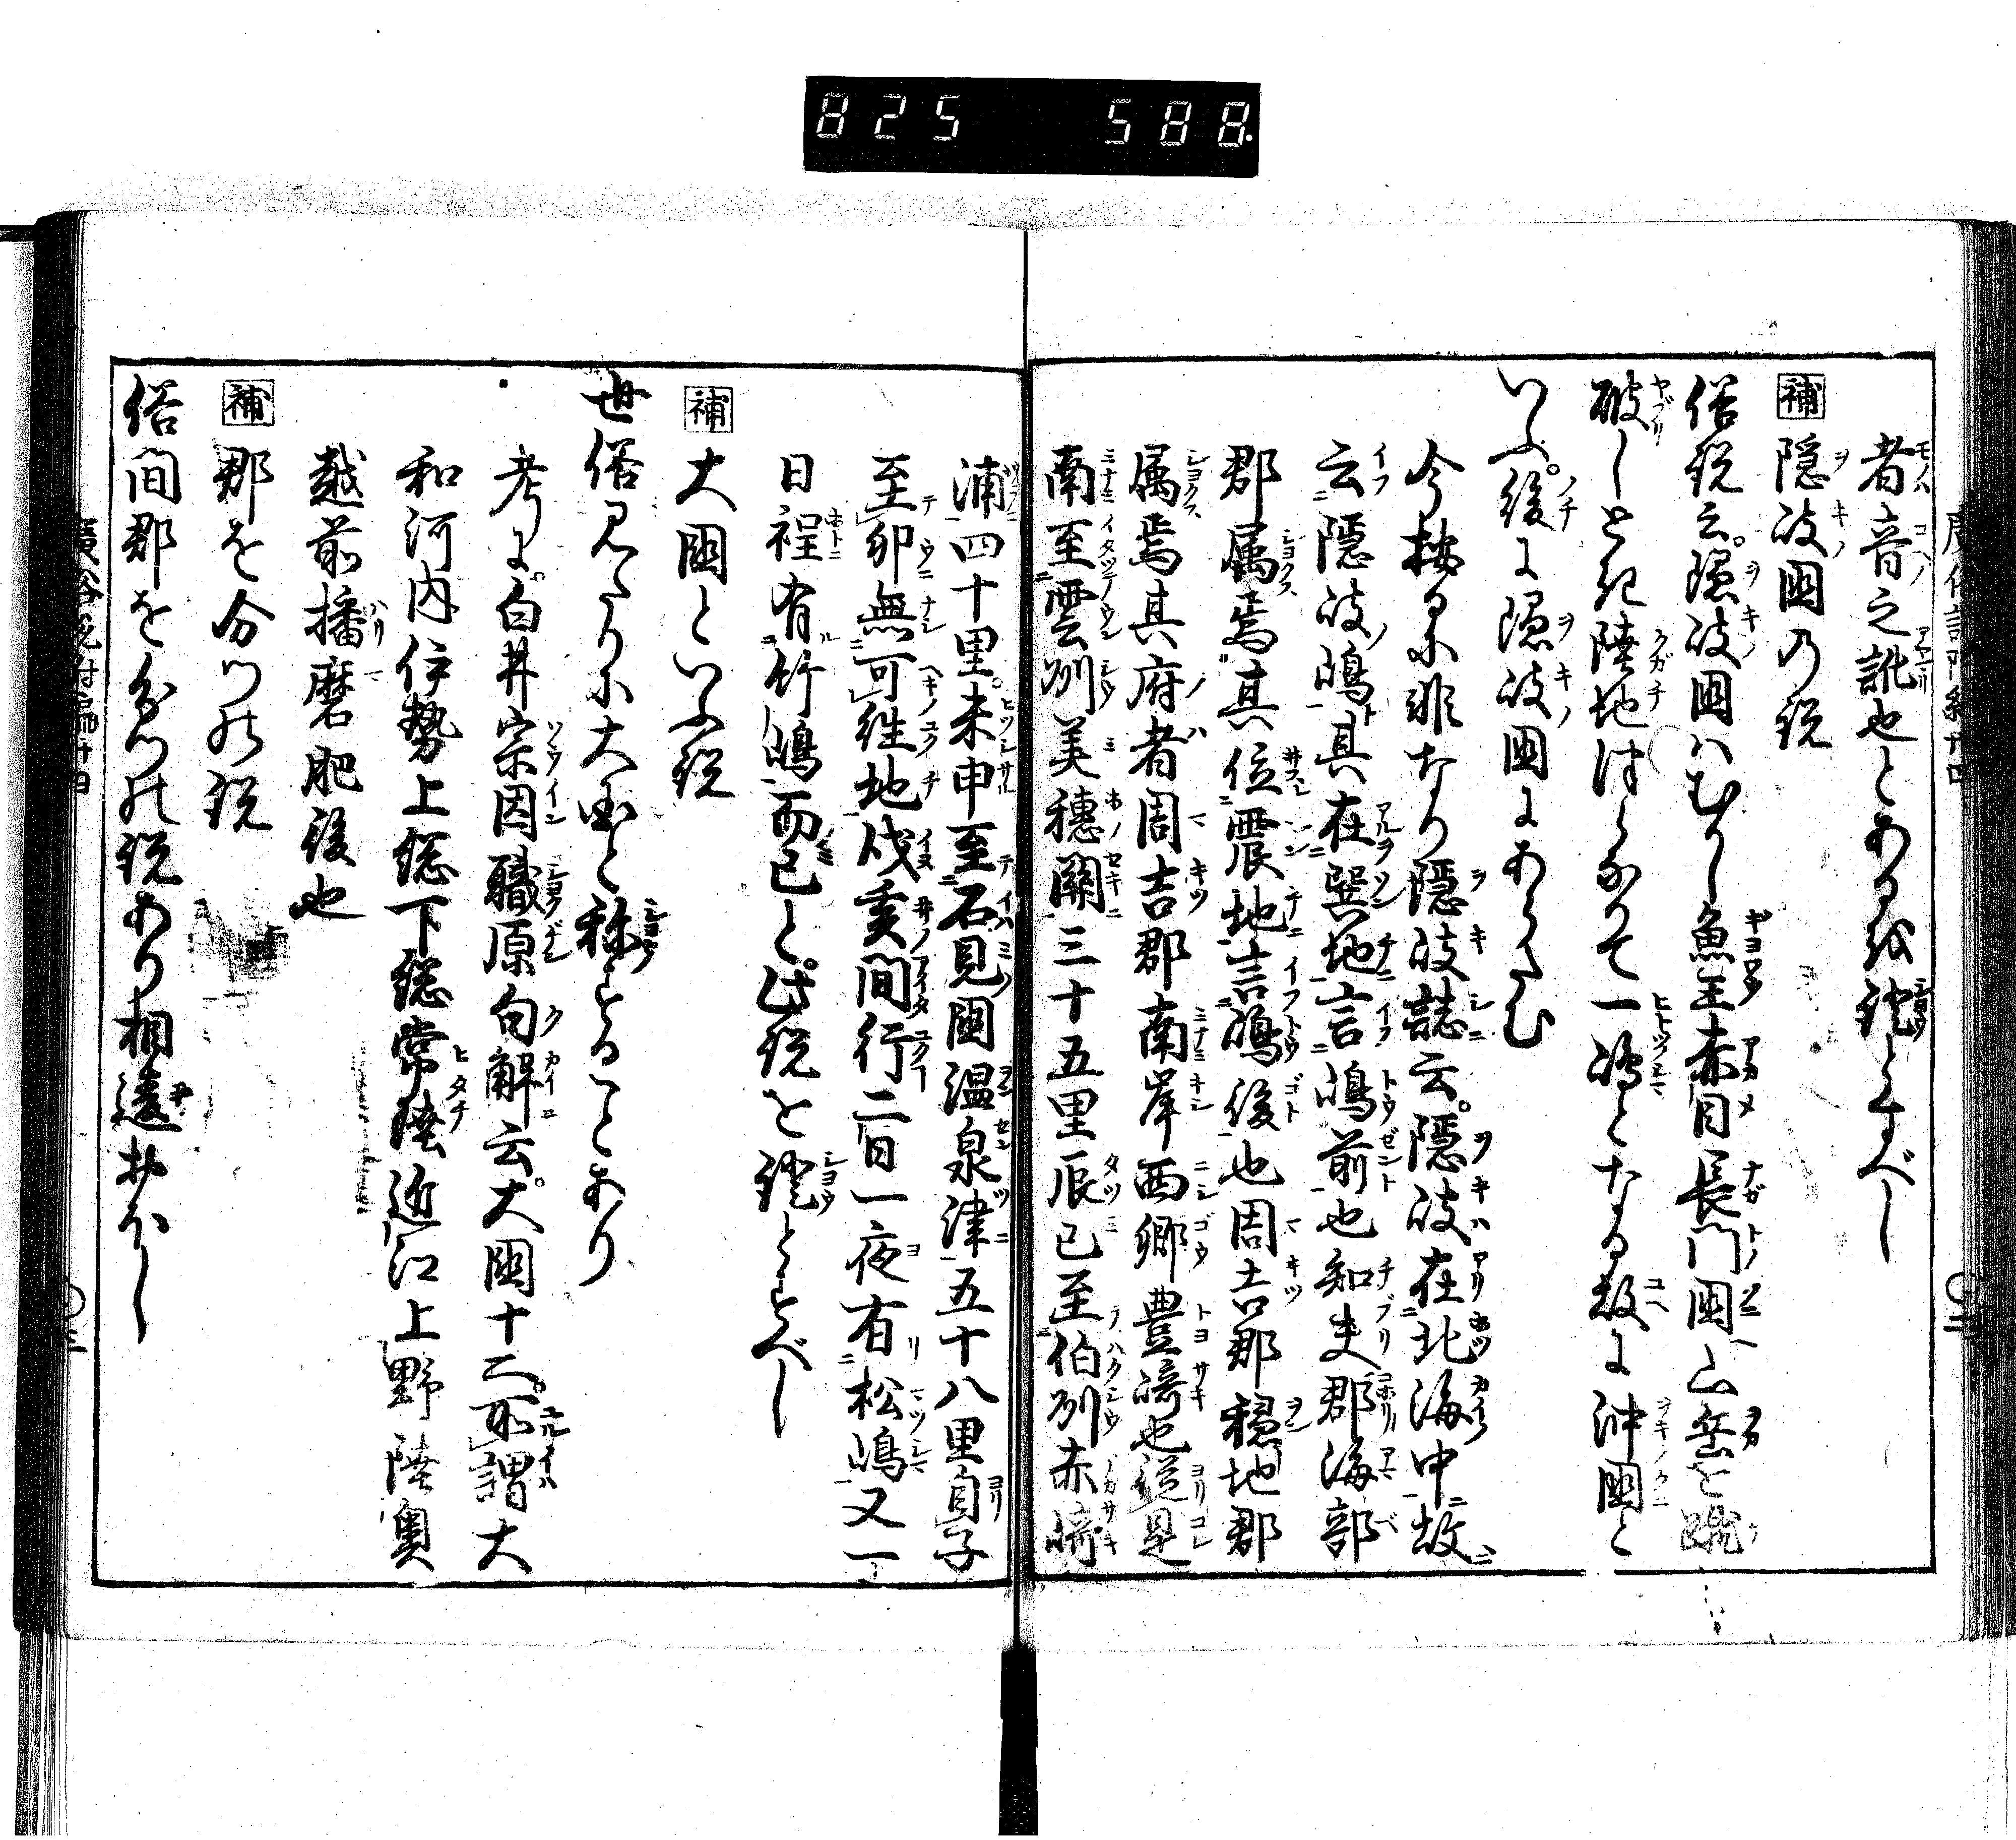 825 588
者音之訛也とある或證とすべし
補 隠岐国の説
俗説云。隠岐国ハむかし魚王赤目長門国一山岳を
破しとき陸地はしなれて一嶋となる故に沖国と
いふ。後に隠岐国にあらたむ
今按るに非なり隠岐誌云。隠岐在北海中故
云隠岐嶋其在巽地言嶋前也知夫郡海部
郡属焉其位震地言嶋後也周吉郡穏地郡
属焉其府者周吉郡南岸西郷豊崎也従是
南至雲州美穂関三十五里辰巳至伯州赤崎
浦四十里。未申至石見国温泉津五十八里自子
至卯無可往地戌亥間行二日一夜有松嶋又一
日程有竹嶋而已と。此説を證とすべし
補 大国といふ説
世俗みだりに大国と称することあり
考に。白井宗因職原句解云。大国十二。所謂大
和河内伊勢上総下総常陸近江上野陸奥
越前播磨肥後也
補 郡を分つの説
俗間郡をわかつの説あり相違おほし